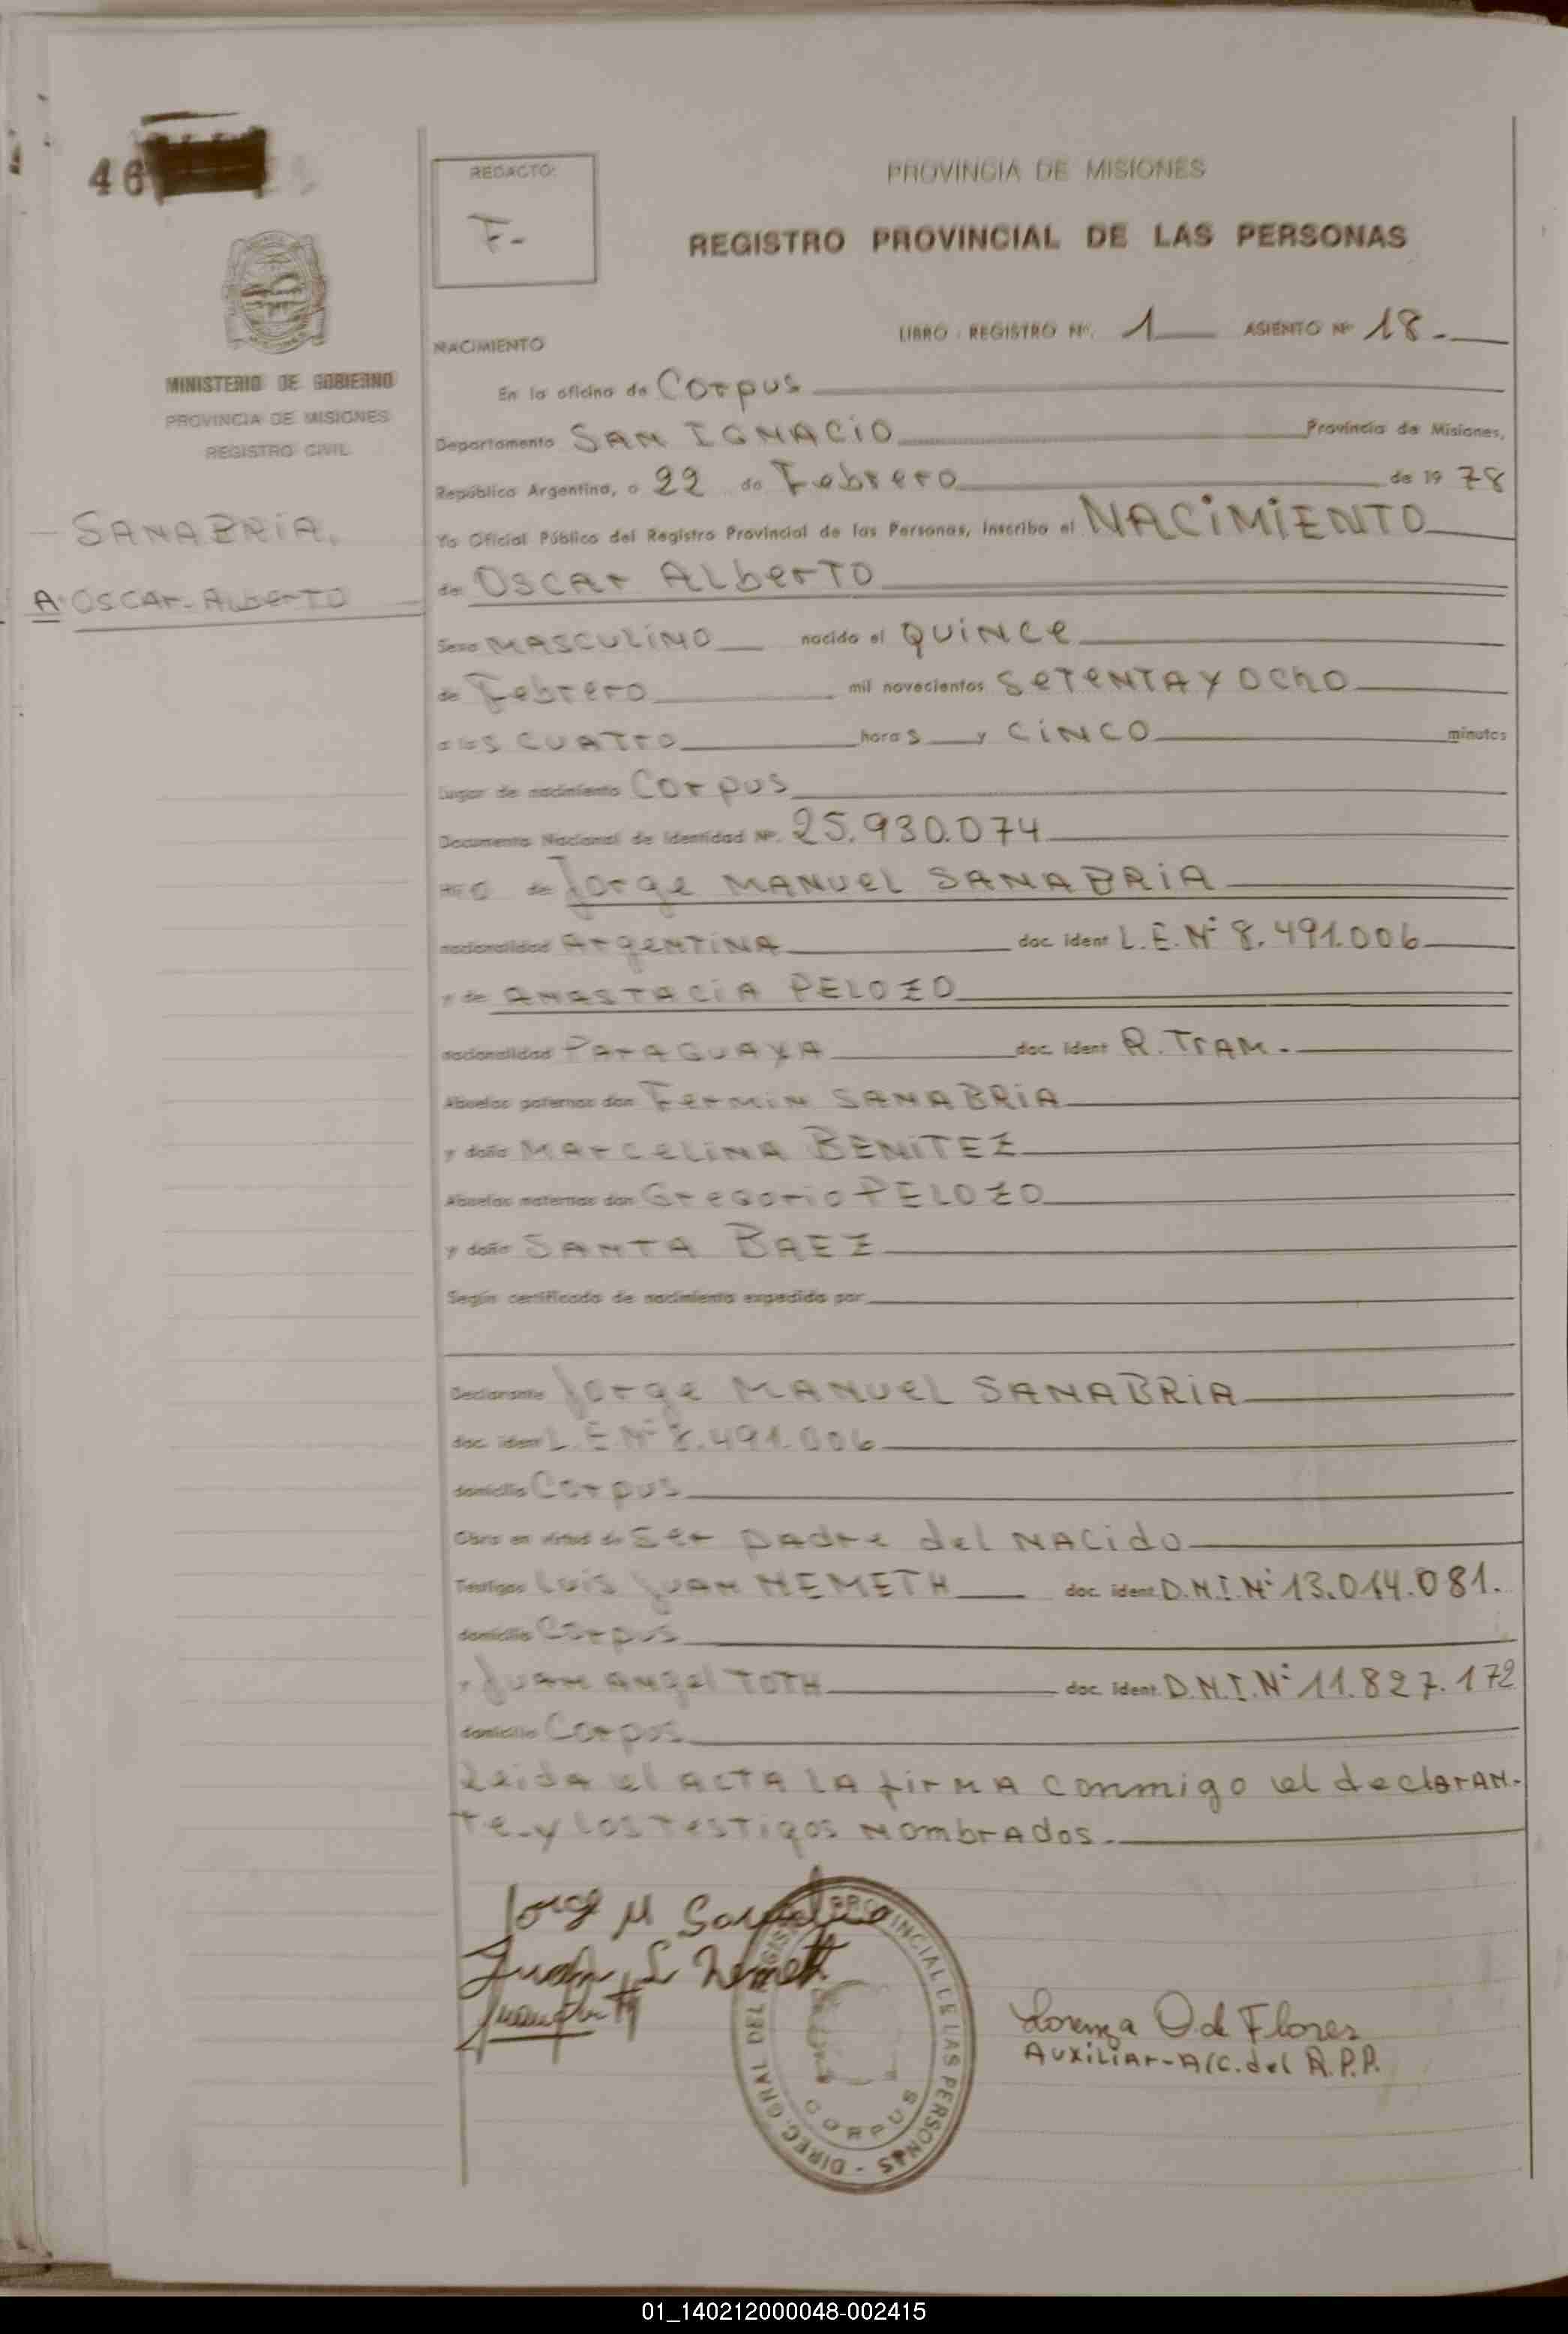 46
REDACTO:
F-
PROVINCIA DE MISIONES
REGISTRO PROVINCIAL DE LAS PERSONAS
LIBRO - REGISTRO Nº. 1 ASIENTO Nº 18-
NACIMIENTO
MINISTERIO DE GOBIERNO
PROVINCIA DE MISIONES
REGISTRO CIVIL
SANABRIA,
A OSCAR-ALBERTO
En la oficina de Corpus
Departamento SAN IGNACIO Provincia de Misiones,
República Argentina, a 22 de Febrero de 19 78
Yo Oficial Público del Registro Provincial de las Personas, inscribo el NACIMIENTO
de OSCAR ALBERTO
Sexo MASCULINO nacido el QUINCE
de Febrero mil novecientos SETENTA Y OCHO
a las CUATRO horas y CINCO minutos
Lugar de nacimiento Corpus
Documento Nacional de Identidad Nº. 25.930.074
HIJO de Jorge MANUEL SANABRIA
nacionalidad ARGENTINA doc. ident L.E.Nº 8.491.006
y de ANASTACIA PELOZO
nacionalidad PARAGUAYA doc. ident R. TRAM.-
Abuelos paternos don FERMIN SANABRIA
y doña MARCELINA BENITEZ
Abuelos maternos don Gregorio PELOZO
y doña SANTA BAEZ
Según certificado de nacimiento expedido por
Declarante Jorge MANUEL SANABRIA
doc. ident L.E Nº 8.491.006
domicilio Corpus
Obra en virtud de Ser padre del NACIDO
Testigos LUIS JUAN NEMETH doc. ident. D.N.I.Nº 13.014.081.
domicilio Corpus
y JUAN ANGEL TOTH doc. ident. D.N.I.Nº 11.827.172
domicilio Corpus
Leida el ACTA LA firMA conmigo el declarAN-
te-y los testigos nombrados.-
Jorge M Sanabria
Juan L Nemeth
DIREC. GRAL DEL REGISTRO PROVINCIAL DE LAS PERSONAS -
CORPUS
Lorenza O de Flores
Auxiliar-A/C. del R.P.P.
01_140212000048-002415